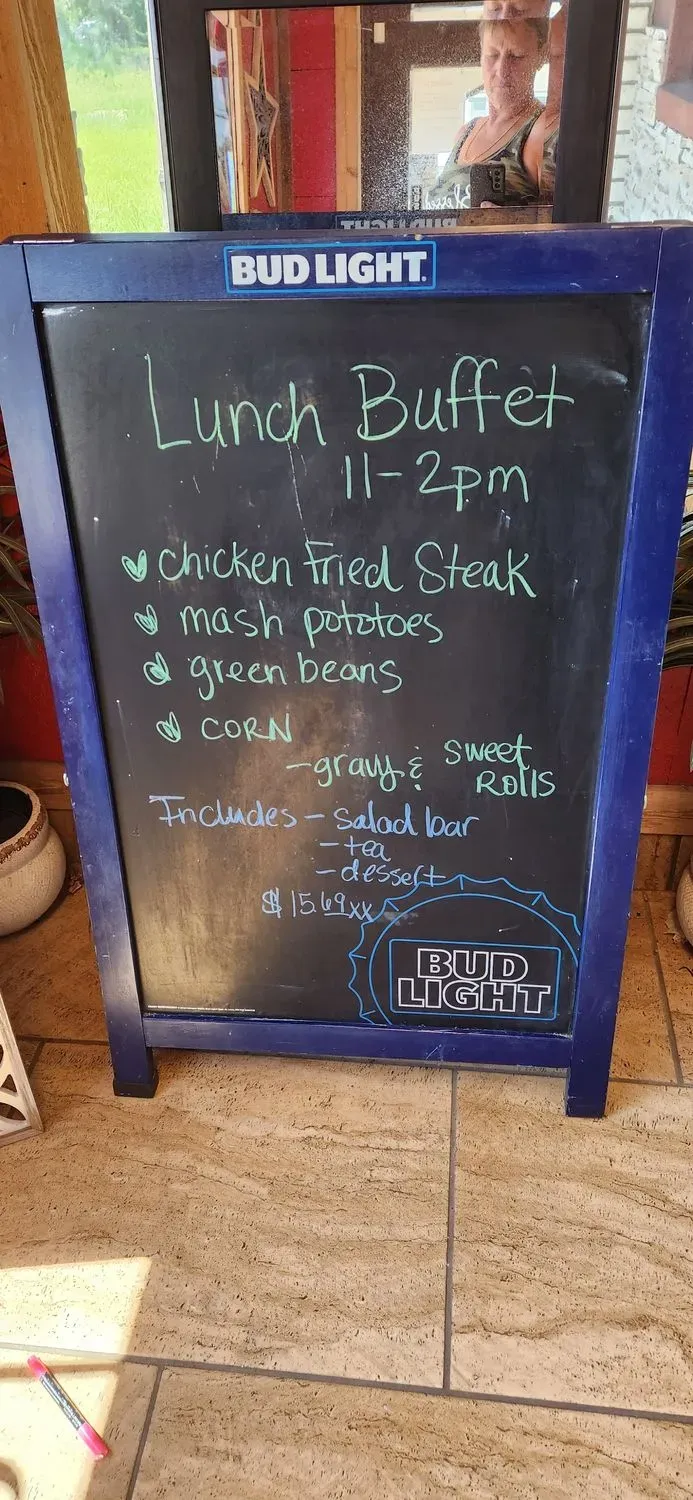 Blessed
BUD LIGHT
BUD LIGHT.
Lunch Buffet
11-2pm
chicken Fried Steak
mash pototoes
green beans
CORN
- gravy & sweet Rolls
Includes - salad bar
- tea
- dessert
$ 15.69xx
BUD
LIGHT